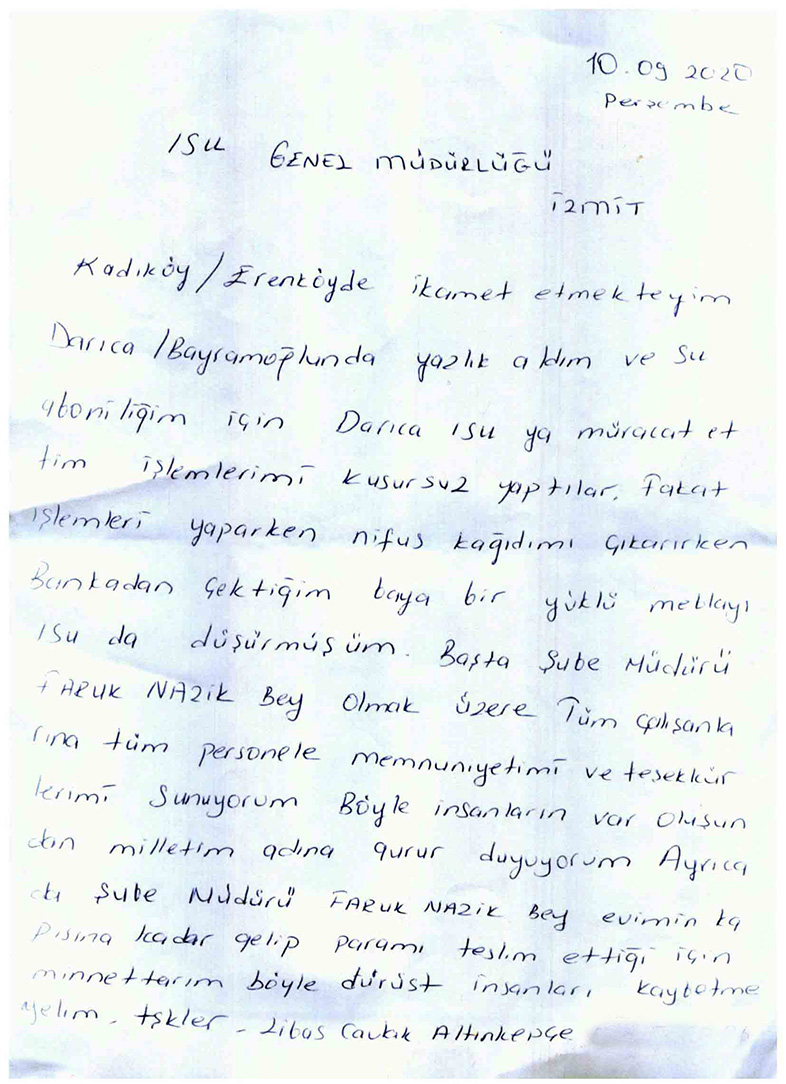 10.09 2020
Perşembe
ISU GENEL MÜDÜRLÜĞÜ
İZMİT
Kadıköy / Erenköyde ikamet etmekteyim
Darıca / Bayramoğlunda yazlık aldım ve su
aboniliğim için Darıca ISU ya müracat et
tim işlemlerimi kusursuz yaptılar, fakat
işlemleri yaparken nifus kağıdımı çıkarırken
Bankadan çektiğim baya bir yüklü meblayı
ISU da düşürmüşüm. Başta Şube Müdürü
FARUK NAZİK Bey Olmak üzere Tüm çalışanla
rına tüm personele memnuniyetimi ve teşekkür
lerimi Sunuyorum Böyle insanların var oluşun
dan milletim adına gurur duyuyorum Ayrıca
da Şube Müdürü FARUK NAZİK Bey evimin ka
pısına kadar gelip paramı teslim ettiği için
minnettarım böyle dürüst insanları kaybetme
yelim. tşkler - Altınkepçe